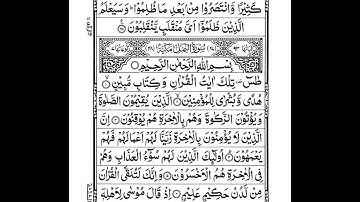 كَثِيْرًا وَّانْتَصَرُوْا مِنْۢ بَعْدِ مَا ظُلِمُوْا ؕ وَسَيَعْلَمُ
الَّذِيْنَ ظَلَمُوْۤا اَىَّ مُنْقَلَبٍ يَّنْقَلِبُوْنَ
سُوْرَةُ النَّمْلِ مَكِّيَّةٌ
بِسْمِ اللّٰهِ الرَّحْمٰنِ الرَّحِيْمِ
طٰسٓ تِلْكَ اٰيٰتُ الْقُرْاٰنِ وَكِتَابٍ مُّبِيْنٍ
هُدًى وَّبُشْرٰى لِلْمُؤْمِنِيْنَ الَّذِيْنَ يُقِيْمُوْنَ الصَّلٰوةَ
وَيُؤْتُوْنَ الزَّكٰوةَ وَهُمْ بِالْاٰخِرَةِ هُمْ يُوْقِنُوْنَ اِنَّ
الَّذِيْنَ لَا يُؤْمِنُوْنَ بِالْاٰخِرَةِ زَيَّنَّا لَهُمْ اَعْمَالَهُمْ فَهُمْ
يَعْمَهُوْنَ اُولٰٓئِكَ الَّذِيْنَ لَهُمْ سُوْٓءُ الْعَذَابِ وَهُمْ
فِى الْاٰخِرَةِ هُمُ الْاَخْسَرُوْنَ وَاِنَّكَ لَتُلَقَّى الْقُرْاٰنَ
مِنْ لَّدُنْ حَكِيْمٍ عَلِيْمٍ اِذْ قَالَ مُوْسٰى لِاَهْلِهٖۤ